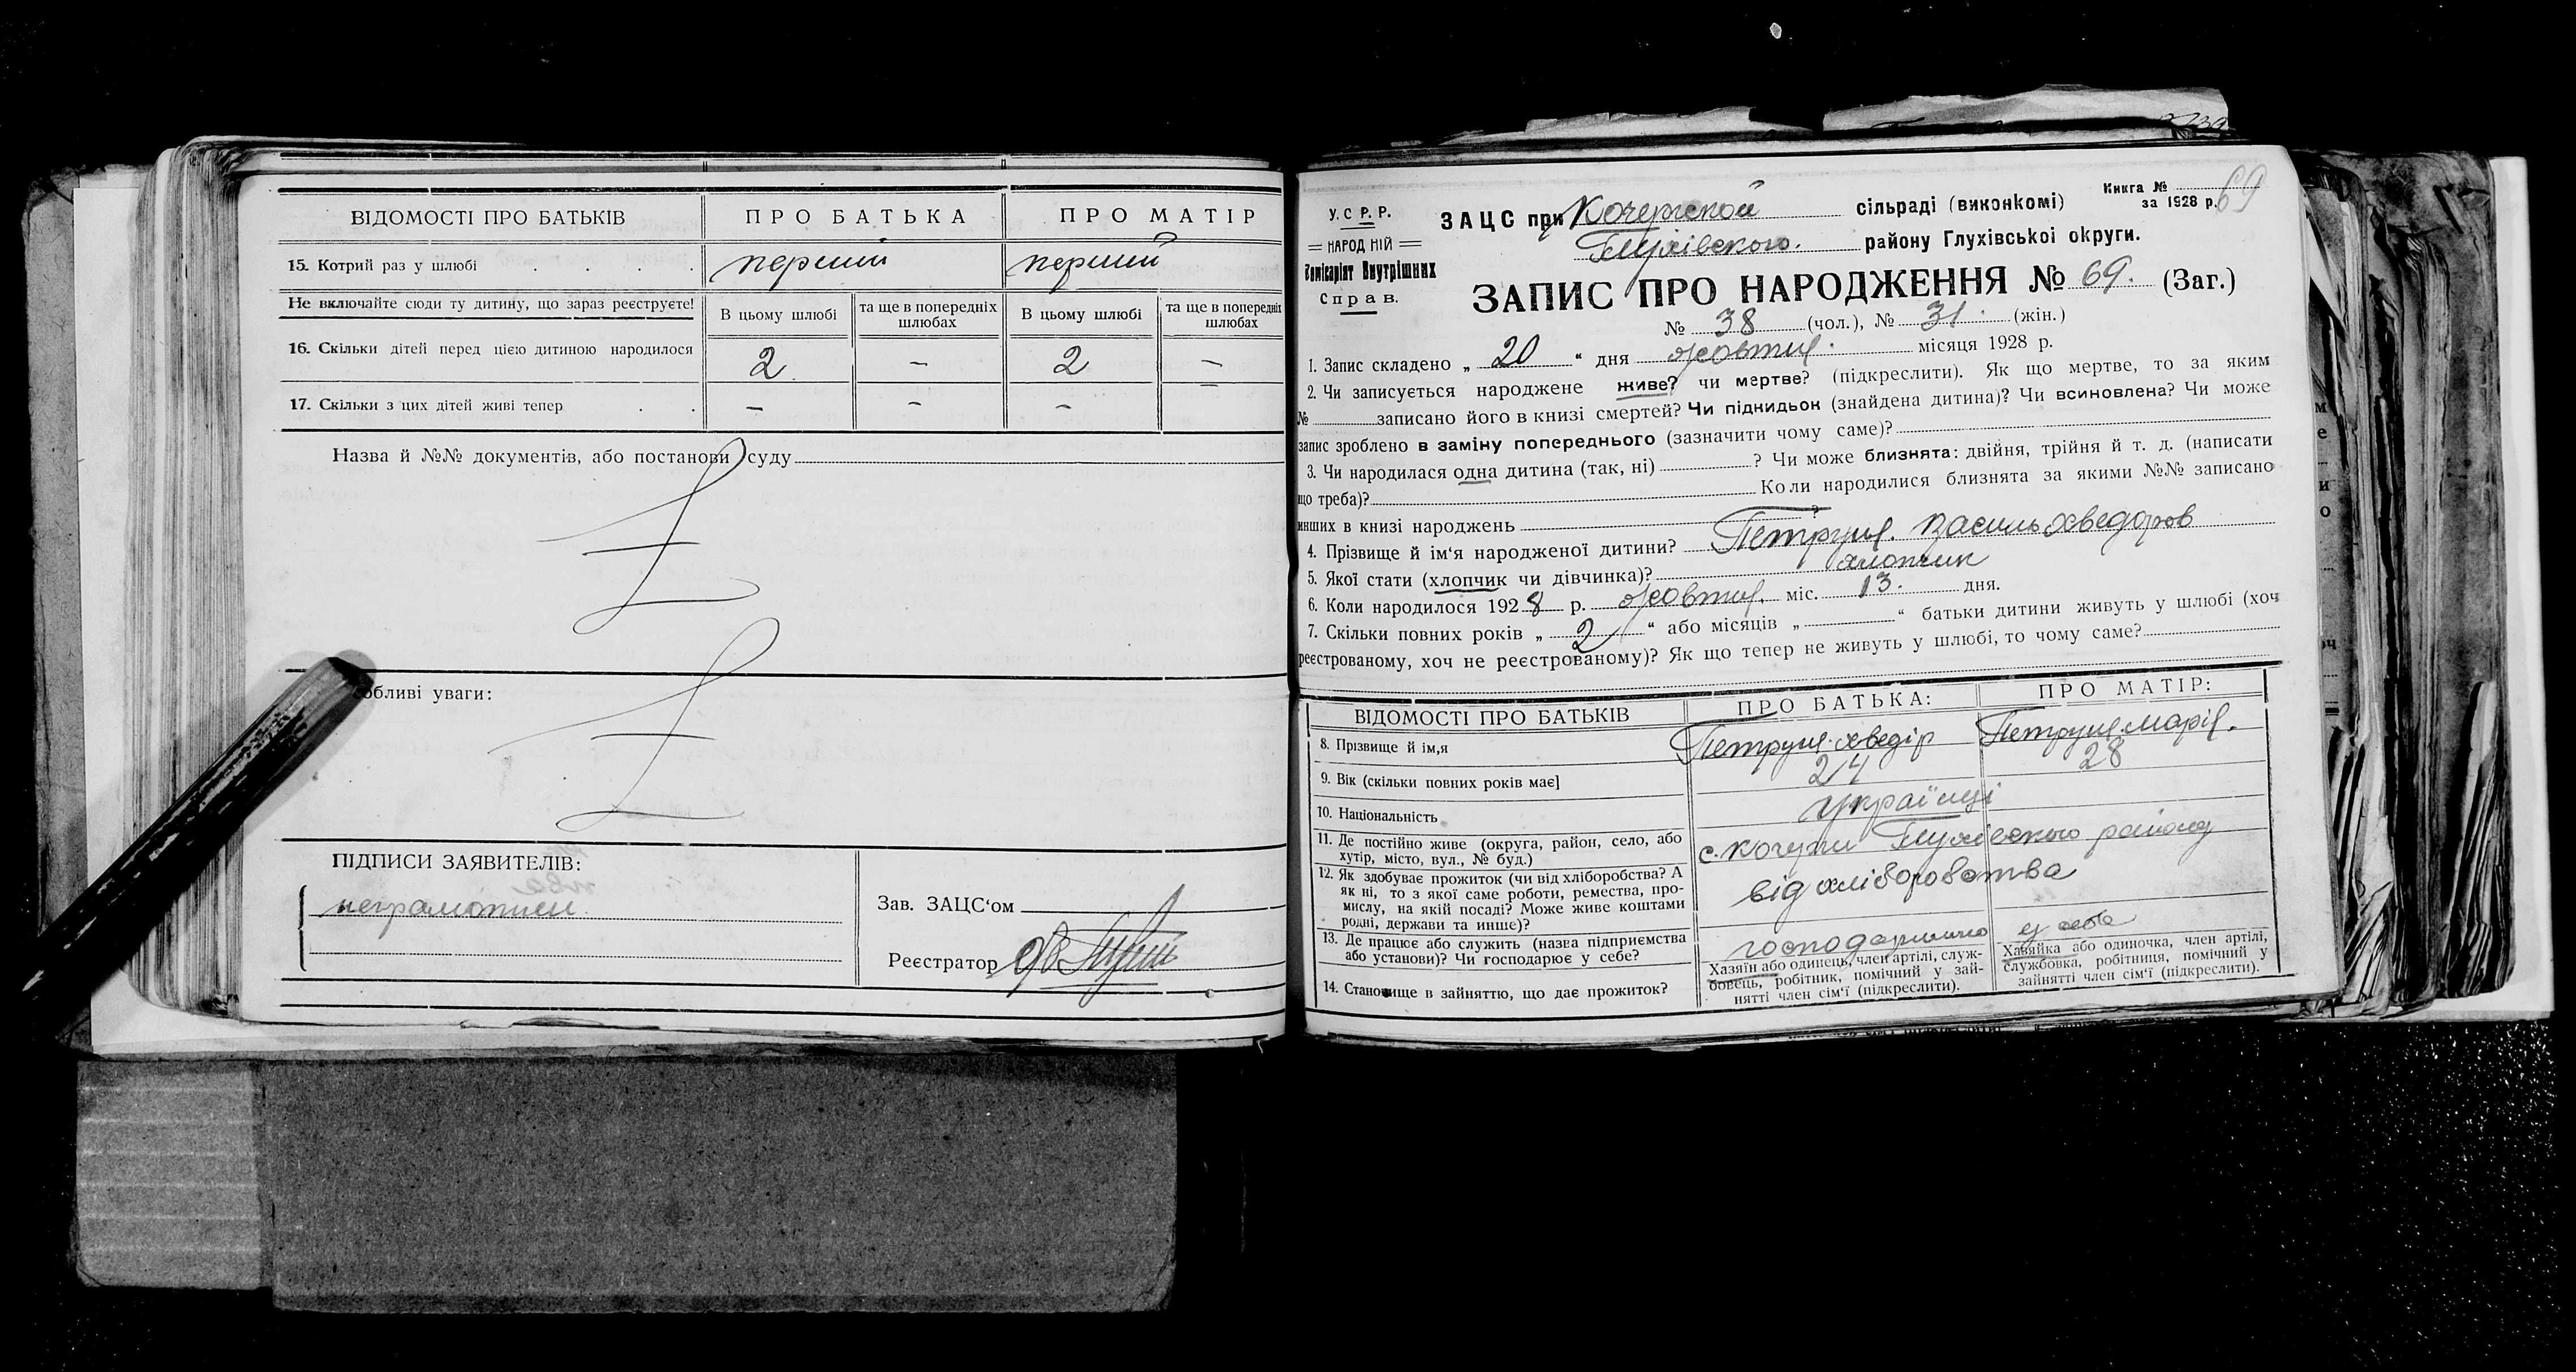 ВІДОМОСТІ ПРО БАТЬКІВ ПРО БАТЬКА ПРО МАТІР
15. Котрий раз у шлюбі перший перший
Не включайте сюди ту дитину, що зараз реєструєте! В цьому шлюбі та ще в попередніх шлюбах В цьому шлюбі та ще в попередніх шлюбах
16. Скільки дітей перед цією дитиною народилося 2 – 2 –
17. Скільки з цих дітей живі тепер – – –
Назва й №№ документів, або постанови суду
обливі уваги:
ПІДПИСИ ЗАЯВИТЕЛІВ:
неграмотний
Зав. ЗАЦС‘ом
Реєстратор
Книга №
за 1928 р. 69
У. С Р. Р.
НАРОДНІЙ
Комісаріят Внутрішних
Справ.
ЗАЦС при Кочержской сільраді (виконкомі)
Глухівского району Глухівської округи.
ЗАПИС ПРО НАРОДЖЕННЯ № 69. (Заг.)
№ 38 (чол.), № 31. (жін.)
1. Запис складено „ 20 “ дня жовтня місяця 1928 р.
2. Чи записується народжене живе? чи мертве? (підкреслити). Як що мертве, то за яким
№ записано його в книзі смертей? Чи підкидьок (знайдена дитина)? Чи всиновлена? Чи може
запис зроблено в заміну попереднього (зазначити чому саме)?
3. Чи народилася одна дитина (так, ні) ? Чи може близнята: двійня, трійня й т. д. (написати
що треба)? Коли народилися близнята за якими №№ записано
инших в книзі народжень ?
4. Прізвище й ім‘я народженої дитини? Петруня. Василь Хведоров
5. Якої стати (хлопчик чи дівчинка)? хлопчик
6. Коли народилося 1928 р. жовтня. міс. 13. дня.
7. Скільки повних років „ 2 “ або місяців „ “ батьки дитини живуть у шлюбі (хоч
реєстрованому, хоч не реєстрованому)? Як що тепер не живуть у шлюбі, то чому саме?
ВІДОМОСТІ ПРО БАТЬКІВ ПРО БАТЬКА: ПРО МАТІР:
8. Прізвище й ім,я Петруня Хведір Петруня Марія.
9. Вік (скільки повних років має] 24 28
10. Національність українці
11. Де постійно живе (округа, район, село, або
хутір, місто, вул., № буд.) с. Кочерги Глухівского району
12. Як здобуває прожиток (чи від хліборобства? А
як ні, то з якої саме роботи, ремества, про-
мислу, на якій посаді? Може живе коштами
родні, держави та инше)? від хліборобства
13. Де працює або служить (назва підприємства
або установи)? Чи господарює у себе? у себе
14. Становище в зайняттю, що дає прожиток?
Хазяїн або одинець, член артілі, служ-
бовець, робітник, помічний у зай-
нятті член сім‘ї (підкреслити).
Хазяйка або одиночка, член артілі,
службовка, робітниця, помічний у
зайнятті член сім‘ї (підкреслити).